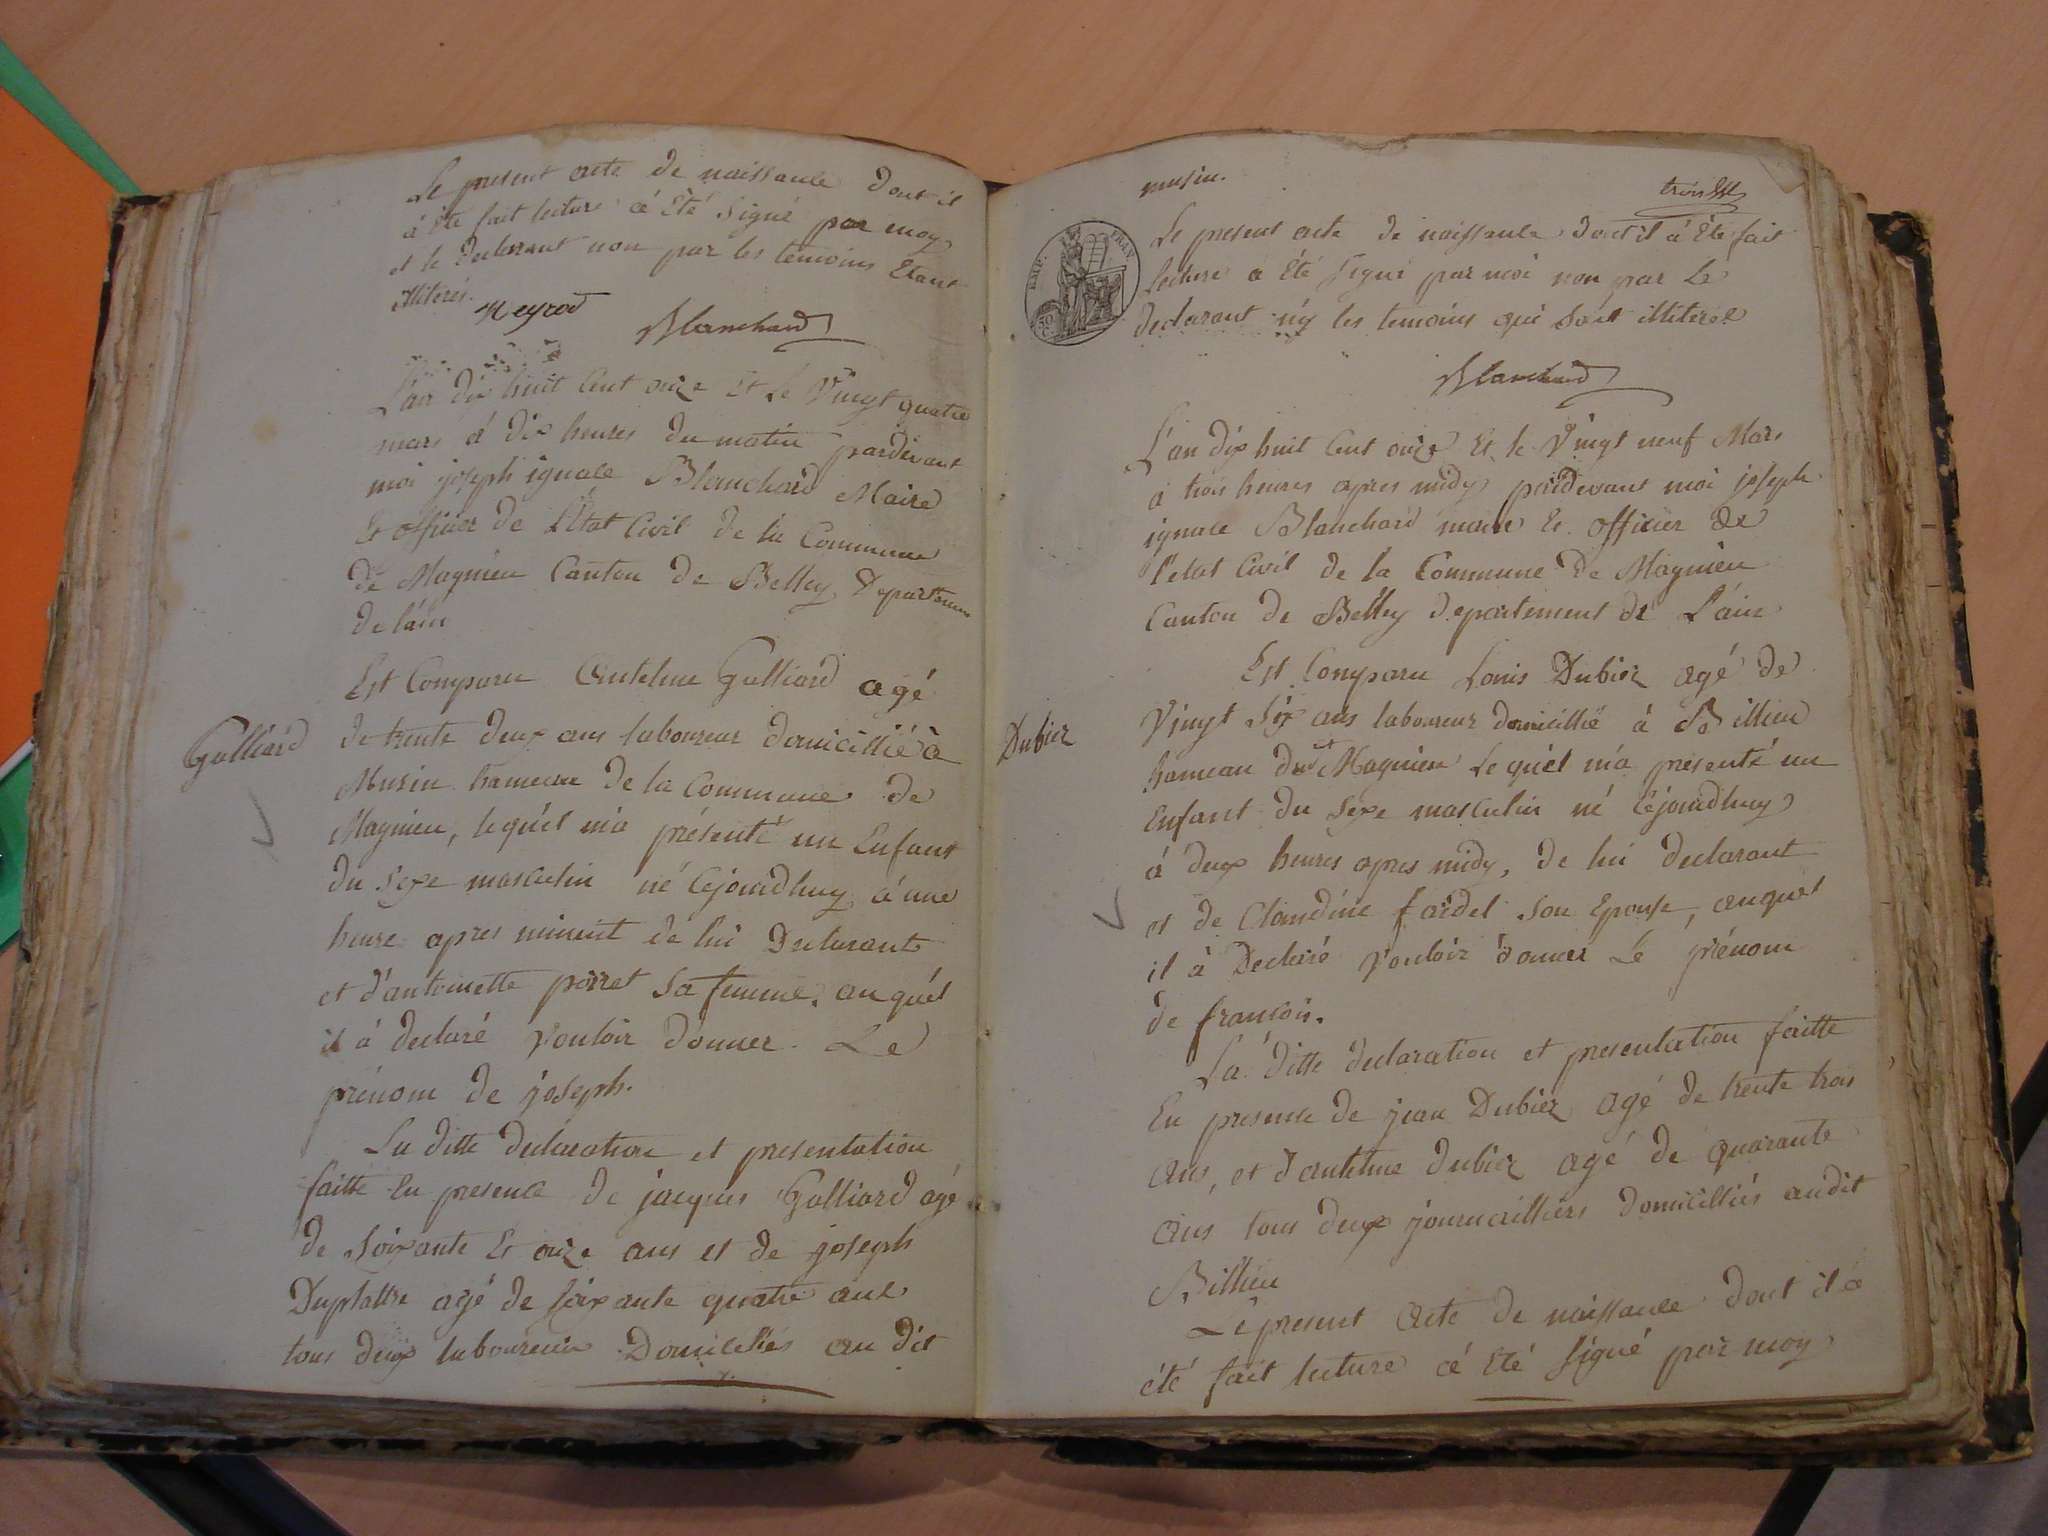 Le present acte de naissance dont il
à été fait lecture à été signé par moy
et le declarant non par les temoins étant
illiterés.
Neyrod
Blanchard
L'an dix huit cent onze et le vingt quatre
mars à dix heures du matin pardevant
moi joseph ignace Blanchard Maire
et officier de l'État Civil de la Commune
de Magnieu Canton de Belley Departement
de l'ain
Est Comparu Antelme Galliard agé
Galliard
de trente deux ans laboureur domicillié à
Musin hameau de la Commune de
Magnieu, lequel m'a présenté un Enfant
du sexe masculin né Cejourdhuy à une
heure apres minuit de lui Declarant
et d'antoinette poiret sa femme. auquel
il à declaré vouloir donner Le
prénom de joseph.
La ditte declaration et presentation
faitte en presence de jacques Galliard agé
de soixante et onze ans et de joseph
Duplattre agé de soixante quatre ans
tous deux laboureurs Domicilliés au dit
musin.
Le present acte de naissance dont il à été fait
lecture à été signé par moi non par le
declarant n'y les temoins qui sont illiterés
EMP. FRAN.
Blanchard
L'an dix huit cent onze et le vingt neuf Mars
à trois heures apres midy pardevant moi joseph
ignace Blanchard maire et officier de
l'etat Civil de la Commune de Magnieu
Canton de Belley departement de L'ain
Est Comparu Louis Dubiez agé de
Dubiez
vingt six ans laboureur domicillié à Billieu
hameau dudt Magnieu lequel m'a présenté un
enfant du sexe masculin né Cejourdhuy
à deux heures apres midy, de lui declarant
et de Claudine fardel son Epouse, auquel
il à Declaré vouloir donner Le prénom
de francois.
La ditte declaration et presentation faitte
En presence de jean Dubiez agé de trente trois
ans, et d'antelme dubiez agé de quarante
ans tous deux journailliers Domicilliés audit
Billieu
Le present Acte de naissance dont il a
été fait lecture à été signé par moy